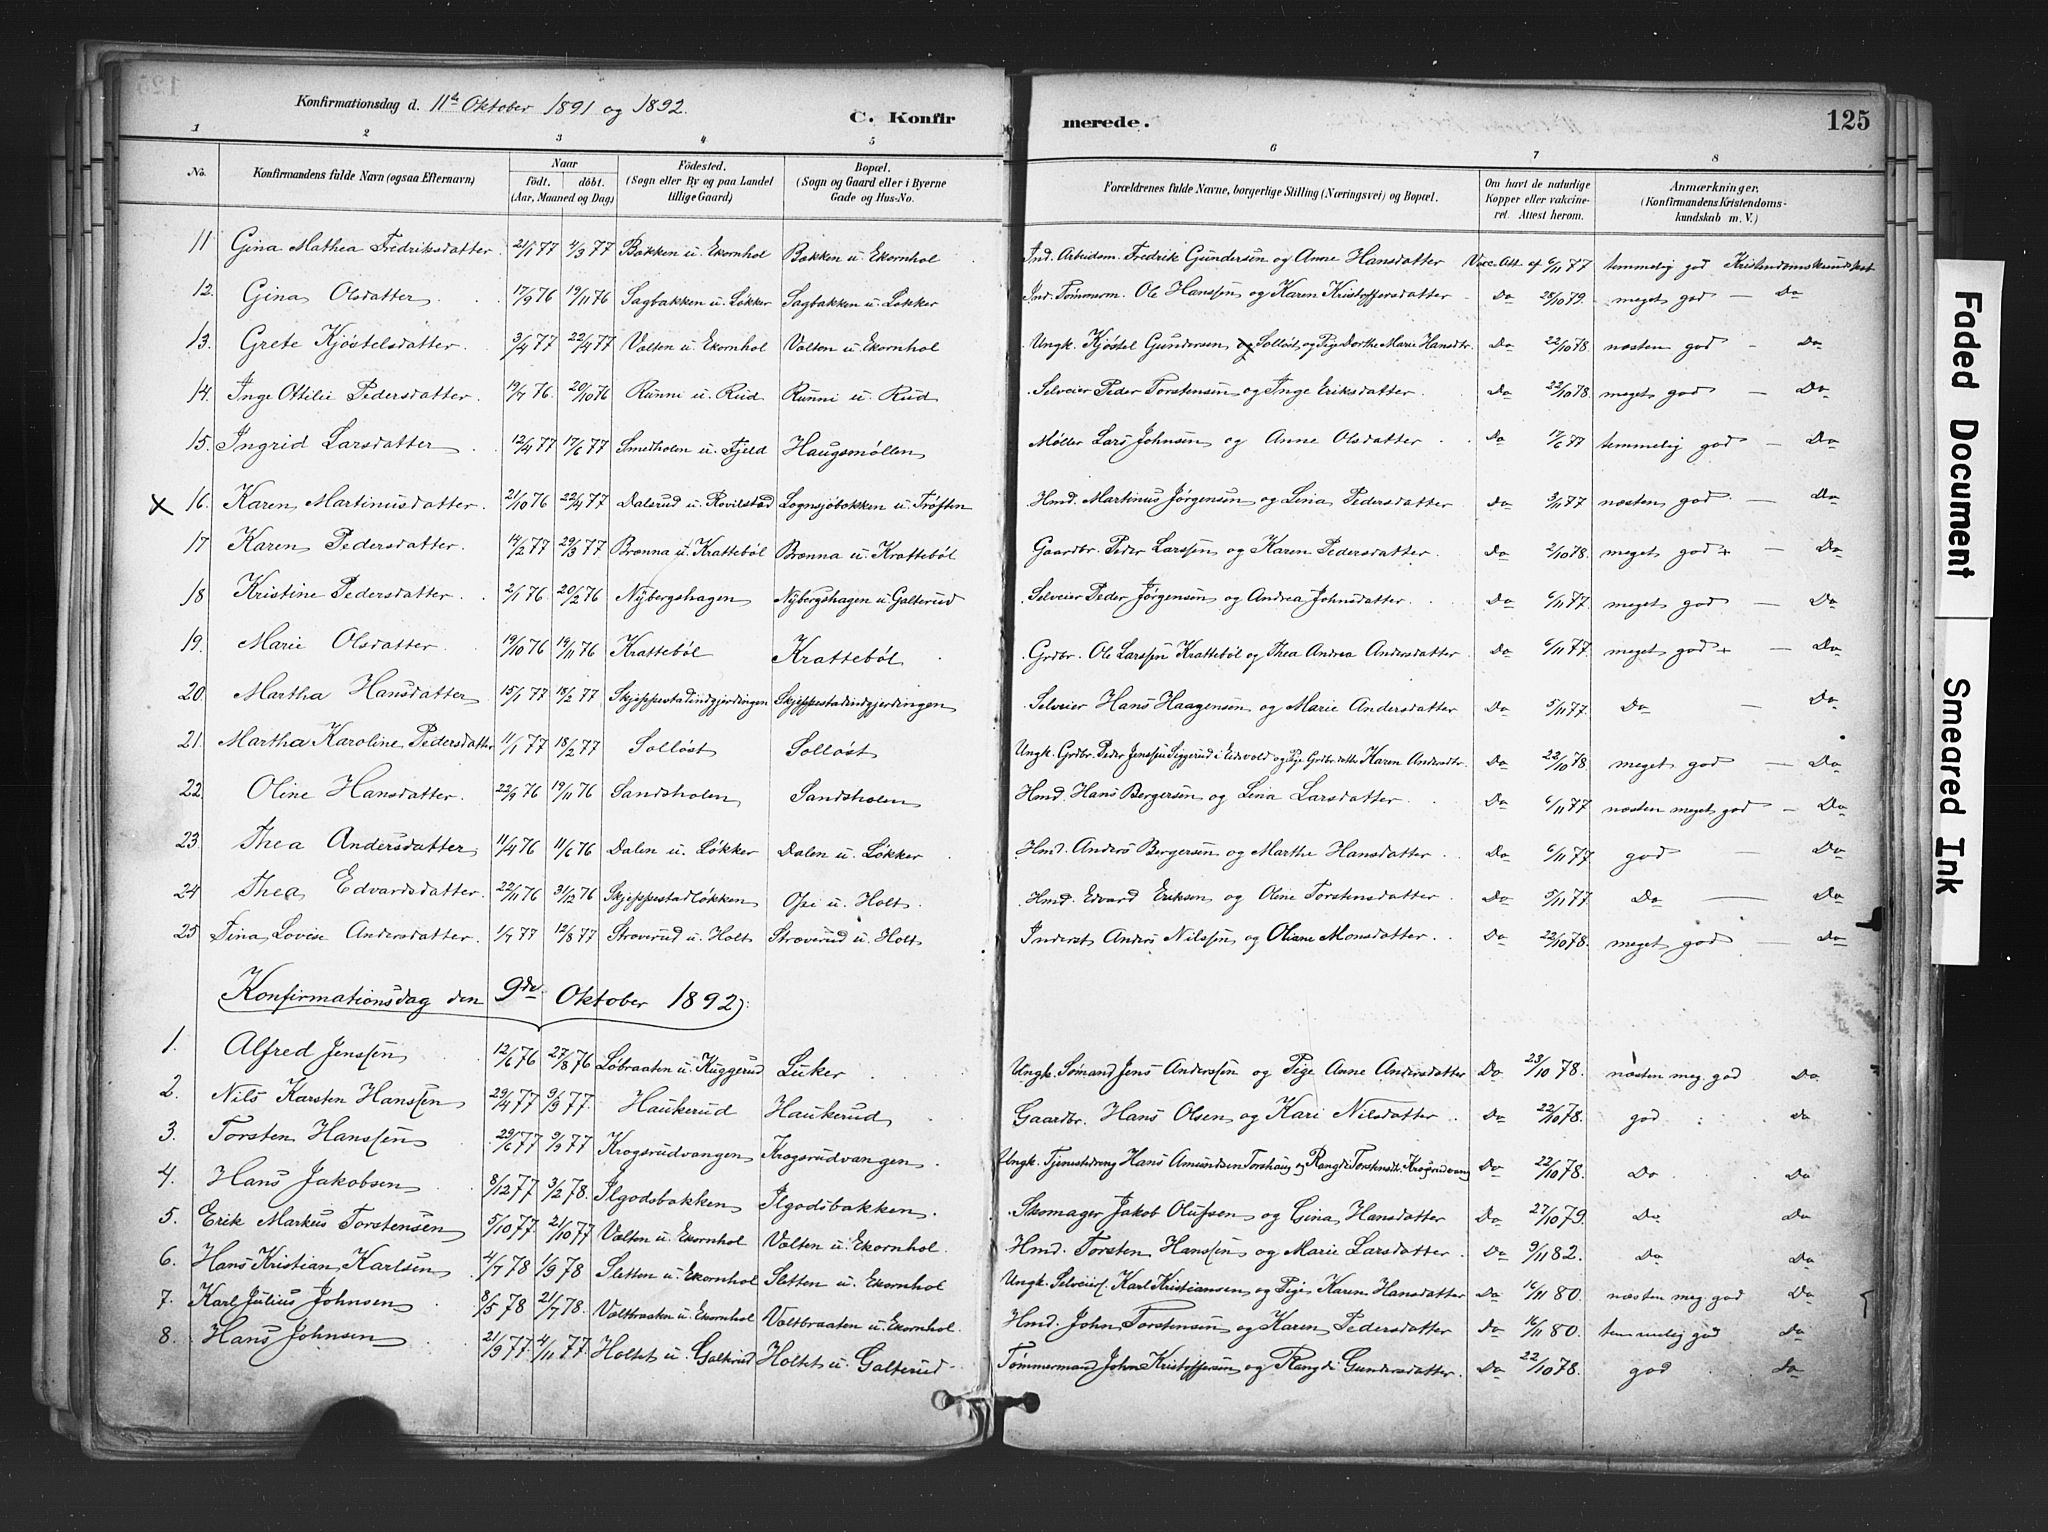 Konfirmationsdag d. 11te Oktober 1891 og 1892.
C. Konfirmerede.
125
1 2 3 4 5 6 7 8
No. Konfirmandens fulde Navn (ogsaa Efternavn) Naar födt. döbt. (Aar, Maaned og Dag) Födested. (Sogn eller By og paa Landet tillige Gaard) Bopæl. (Sogn og Gaard eller i Byerne Gade og Hus-No. Forældrenes fulde Navne, borgerlige Stilling (Næringsvei) og Bopæl. Om havt de naturlige Kopper eller vakcineret. Attest herom. Anmærkninger. (Konfirmandens Kristendomskundskab m. V.)
11 Gina Mathea Fredriksdatter 21/1 77 4/3 77 Bakken u. Ekornhol Bakken u. Ekornhol Ind. Arbeidsm. Fredrik Gundersen og Anne Hansdatter Vacc. Att. af 6/11 77 temmelig god Kristendomskundskab
12. Gina Olsdatter 17/9 76 19/11 76 Sagbakken u. Løkker Sagbakken u. Løkker Ind. Tømmerm. Ole Hanssen og Karen Kristoffersdatter Do 28/10 79. meget god — Do
13. Grete Kjøstelsdatter 3/4 77 22/4 77 Valten u. Ekornhol Valten u. Ekornhol Ungk. Kjøstel Gundersen Solløst og Pige Dorthe Marie Hansdtr. Do 22/10 78. næsten god — Do
14. Inge Ottilie Pedersdatter 19/7 76. 20/10 76 Runni u. Rud Runni u. Rud Selveier Peder Torstensen og Inge Eriksdatter Do 22/10 78. meget god — Do
15. Ingrid Larsdatter 12/4 77 17/6 77 Smedholen u. Fjeld Haugsmøllen Møller Lars Johnsen og Anne Olsdatter Do 17/6 77 temmelig god — Do
x 16. Karen Martinusdatter 21/10 76 22/4 77 Dalsrud u. Rovilstad Lognsjøbakken u. Trøften Hmd. Martinus Jørgensen og Lina Pedersdatter Do 3/11 77 næsten god — Do
17 Karen Pedersdatter 14/2 77 29/3 77 Brenna u. Krattebøl Brenna u. Krattebøl Gaardbr. Peder Larssen og Karen Pedersdatter Do 2/10 78. meget god + — Do
18 Kristine Pedersdatter 2/1 76 20/2 76 Nybergshagen Nybergshagen u. Galterud Selveier Peder Jørgensen og Andrea Johnsdatter Do 6/11 77. meget god — Do
19. Marie Olsdatter 19/10 76 19/11 76 Krattebøl Krattebøl Grdbr. Ole Larssen Krattebøl og Thea Andrea Andersdatter Do 6/11 77. meget god + — Do
20. Martha Hansdatter 15/1 77 18/2 77 Skjeppestadindgjerdingen Skjeppestadindgjerdingen Selveier Hans Haagensen og Marie Andersdatter Do 5/11 77. Do — Do
21. Martha Karoline Pedersdatter 11/1 77 18/2 77 Solløst Solløst Ungk. Grdbr. Peder Jenssen Siggerud i Eidsvold og Pige Grdbr. datter Karen Andersdtr. Do 22/10 78. meget god — Do
22. Oline Hansdatter 22/9 76 19/11 76 Sandsholen Sandsholen Hmd. Hans Bergersen og Lina Larsdatter Do 6/11 77 næsten meget god — Do
23. Thea Andersdatter 11/4 76 11/6 76 Dalen u. Løkker Dalen u. Løkker Hmd. Anders Bergersen og Marthe Hansdatter Do 6/11 77. god — Do
24 Thea Edvardsdatter 22/11 76 31/12 76 Skjeppestadløkken Opi u. Holt Hmd. Edvard Eriksen og Oline Torstensdatter Do 5/11 77. Do — Do
25 Tina Lovise Andersdatter 1/7 77 12/8 77 Strøverud u. Holt Strøverud u. Holt Inderst Anders Nilssen og Oliane Monsdatter Do 22/10 78. meget god — Do
Konfirmationsdag den 9de Oktober 1892:
1. Alfred Jenssen 12/6 76 27/8 76 Løbraaten u. Kuggerud Luker Ungk. Sømand Jens Anderssen og Pige Anne Andersdatter Do 23/10 78. næsten meg. god Do
2. Nils Karsten Hanssen 29/4 77 9/9 77. Haukerud Haukerud Gaardbr. Hans Olsen og Kari Nilsdatter Do 22/10 78. god Do
3. Torsten Hanssen 29/6 77 9/9 77 Krogsrudvangen Krogsrudvangen Ungk. Tjenestedreng Hans Amundsen Torshaug og Rangdi Torstensdtr. Krogsrudvang Do 22/10 78. Do Do
4. Hans Jakobsen 8/12 77 3/2 78. Ilgodsbakken Ilgodsbakken Skomager Jakob Olufsen og Gina Hansdatter Do 27/10 79. Do Do
5. Erik Markus Torstensen 5/10 77 21/10 77 Vælten u. Ekornhol Vælten u. Ekornhol Hmd. Torsten Hanssen og Marie Larsdatter Do 9/11 82. Do Do
6. Hans Kristian Karlsen 4/7 78 1/9 78 Sletten u. Ekornhol Sletten u. Ekornhol Ungk. Selveierf. Karl Kristiansen og Pige Karen Hansdatter Do 16/11 80. næsten meg. god Do
7. Karl Julius Johnsen 8/5 78 21/7 78. Valtbraaten u. Ekornhol Valtbraaten u. Ekornhol Hmd. John Torstensen og Karen Pedersdatter Do 16/11 80. temmelig god Do
8. Hans Johnsen 21/9 77 4/11 77. Holtet u. Galterud Holtet u. Galterud Tømmermand John Kristoffersen og Rangdi Gundersdatter Do 22/10 78. god Do
Faded Document
Smeared Ink